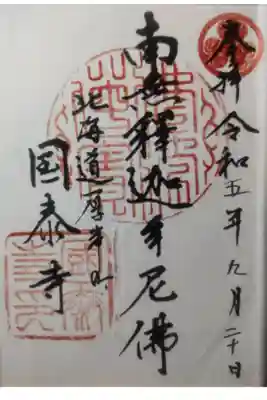 奉拝 令和五年九月二十日
南無釋迦牟尼佛
北海道厚岸山
国泰寺